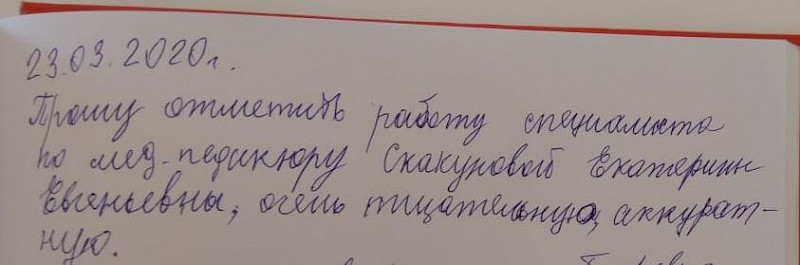 23.03.2020г.
Прошу отметить работу специалиста
по мед-педикюру Скакуновой Екатерины
Евгеньевны, очень тщательную, аккурат-
ную.